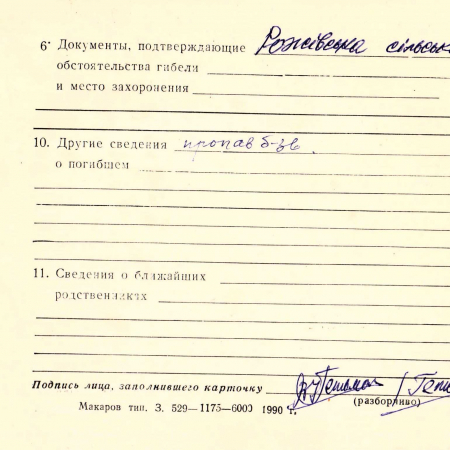 6· Документы, подтверждающие Рожівська сільськ
обстоятельства гибели
и место захоронения
10. Другие сведения пропав б-зв.
о погибшем
11. Сведения о ближайших
родственниках
Подпись лица, заполнившего карточку
(разборчиво)
Макаров тип. З. 529—1175—6000 1990 г.